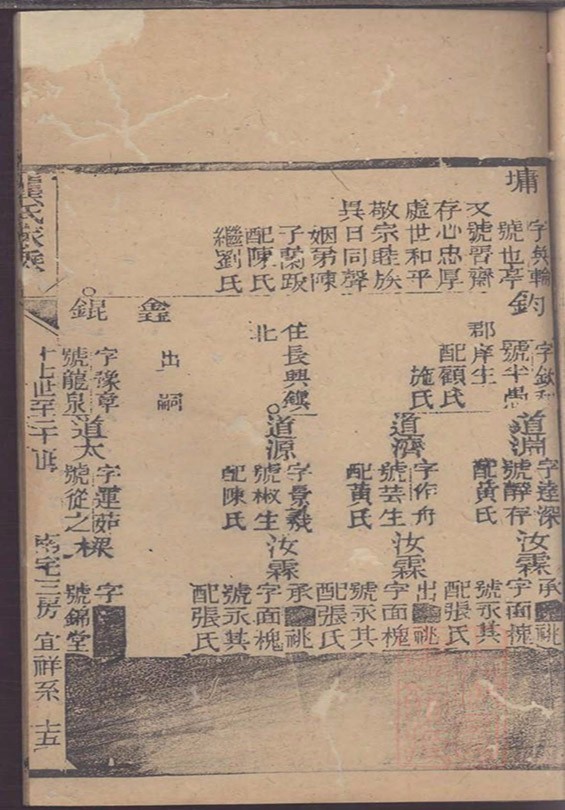 墉
字與輪
號也亭
又號習齋
存心忠厚
處世和平
敬宗睦族
異日同聲
姻弟陳
子蘭跋
配陳氏
繼劉氏
鈞
字欽和
號半愚
郡庠生
配顧氏
施氏
住長興
北
鑫
出嗣
錕
字豫章
號龍泉
道淵
字達深
號靜存
配黃氏
道濟
字作舟
號芸生
配黃氏
道源
號椒生
配陳氏
道太
字蓮茹
號從之
汝霖
承祧
字面槐
號永其
配張氏
汝霖
出祧
字面槐
號永其
配張氏
汝霖
承祧
字面槐
號永其
配張氏
樑
字
號錦堂
氏家乘
十七世至二十世
南宅三房
宜祥系
十五